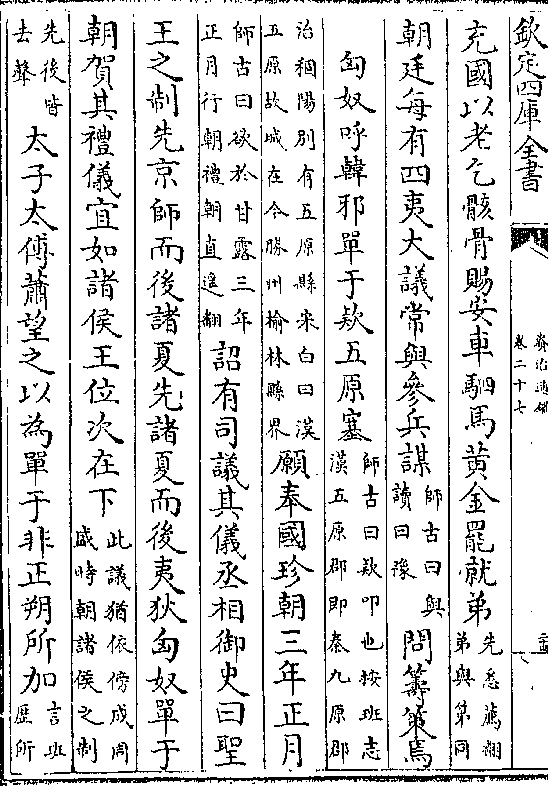 欽定四庫全書
資治通鑑
卷二十七
充國以老乞骸骨賜安車駟馬黃金罷就弟先悉薦翻
弟與第同
朝廷每有四夷大議常與參兵謀師古曰與
讀曰豫問籌策焉
匈奴呼韓邪單于欵五原塞師古曰欵叩也按班志
漢五原郡即秦九原郡
治稒陽別有五原縣宋白曰漢
五原故城在今勝州榆林縣界願奉國珍朝三年正月
師古曰欲於甘露三年
正月行朝禮朝直遥翻詔有司議其儀丞相御史曰聖
王之制先京師而後諸夏先諸夏而後夷狄匈奴單于
朝賀其禮儀宜如諸侯王位次在下此議猶依傍成周
盛時朝諸侯之制
先後皆
去聲太子太傅蕭望之以為單于非正朔所加言班
歷所